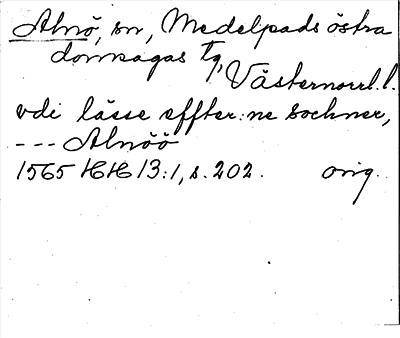 Alnö, sn, Medelpads östra
domsagas tg,
Västernorrl.l.
vdi lässe effter:ne Sochner,
--- Alnöö
1565 HH 13:1, s. 202. orig.